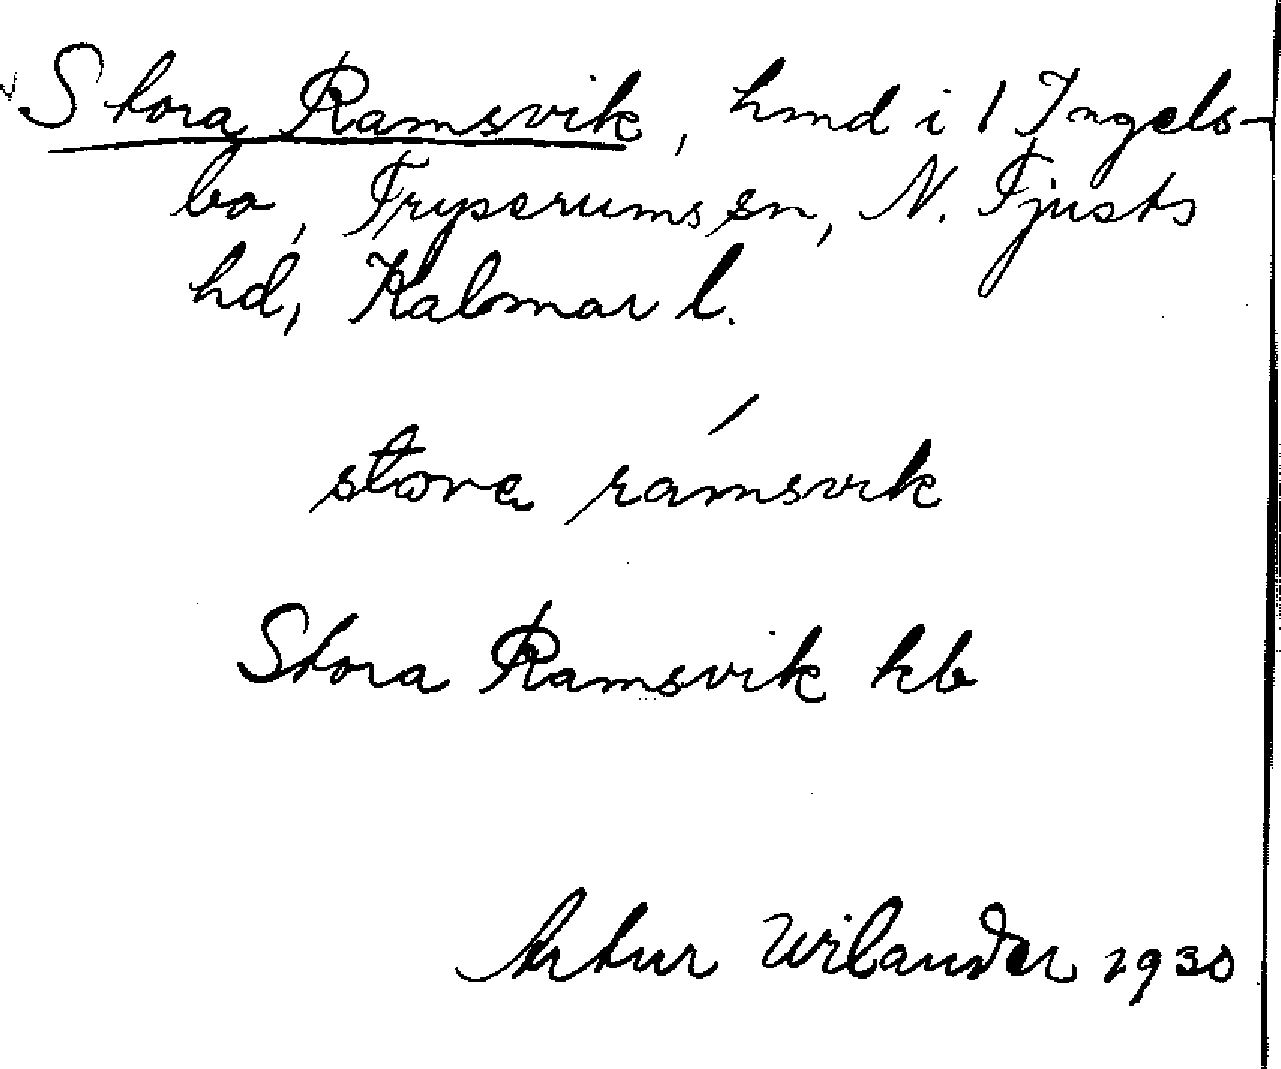 Stora Ramsvik, hmd i 1 Ingels-
bo, Tryserums sn, N. Tjusts
hd, Kalmar l.
stora ramsvik
Stora Ramsvik kb
Artur Wilander 1930